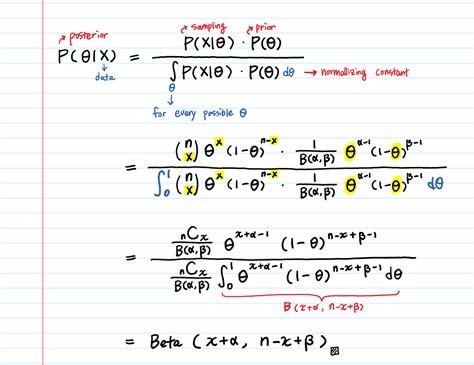 posterior sampling prior
P(θ|X) = P(X|θ) · P(θ) / ∫_θ P(X|θ) · P(θ) dθ → normalizing constant
data
for every possible θ
= (n x) θ^x (1-θ)^{n-x} · 1/B(α,β) θ^{α-1} (1-θ)^{β-1} / ∫_0^1 (n x) θ^x (1-θ)^{n-x} · 1/B(α,β) θ^{α-1} (1-θ)^{β-1} dθ
= nCx/B(α,β) θ^{x+α-1} (1-θ)^{n-x+β-1} / nCx/B(α,β) ∫_0^1 θ^{x+α-1} (1-θ)^{n-x+β-1} dθ
B(x+α, n-x+β)
= Beta (x+α, n-x+β)